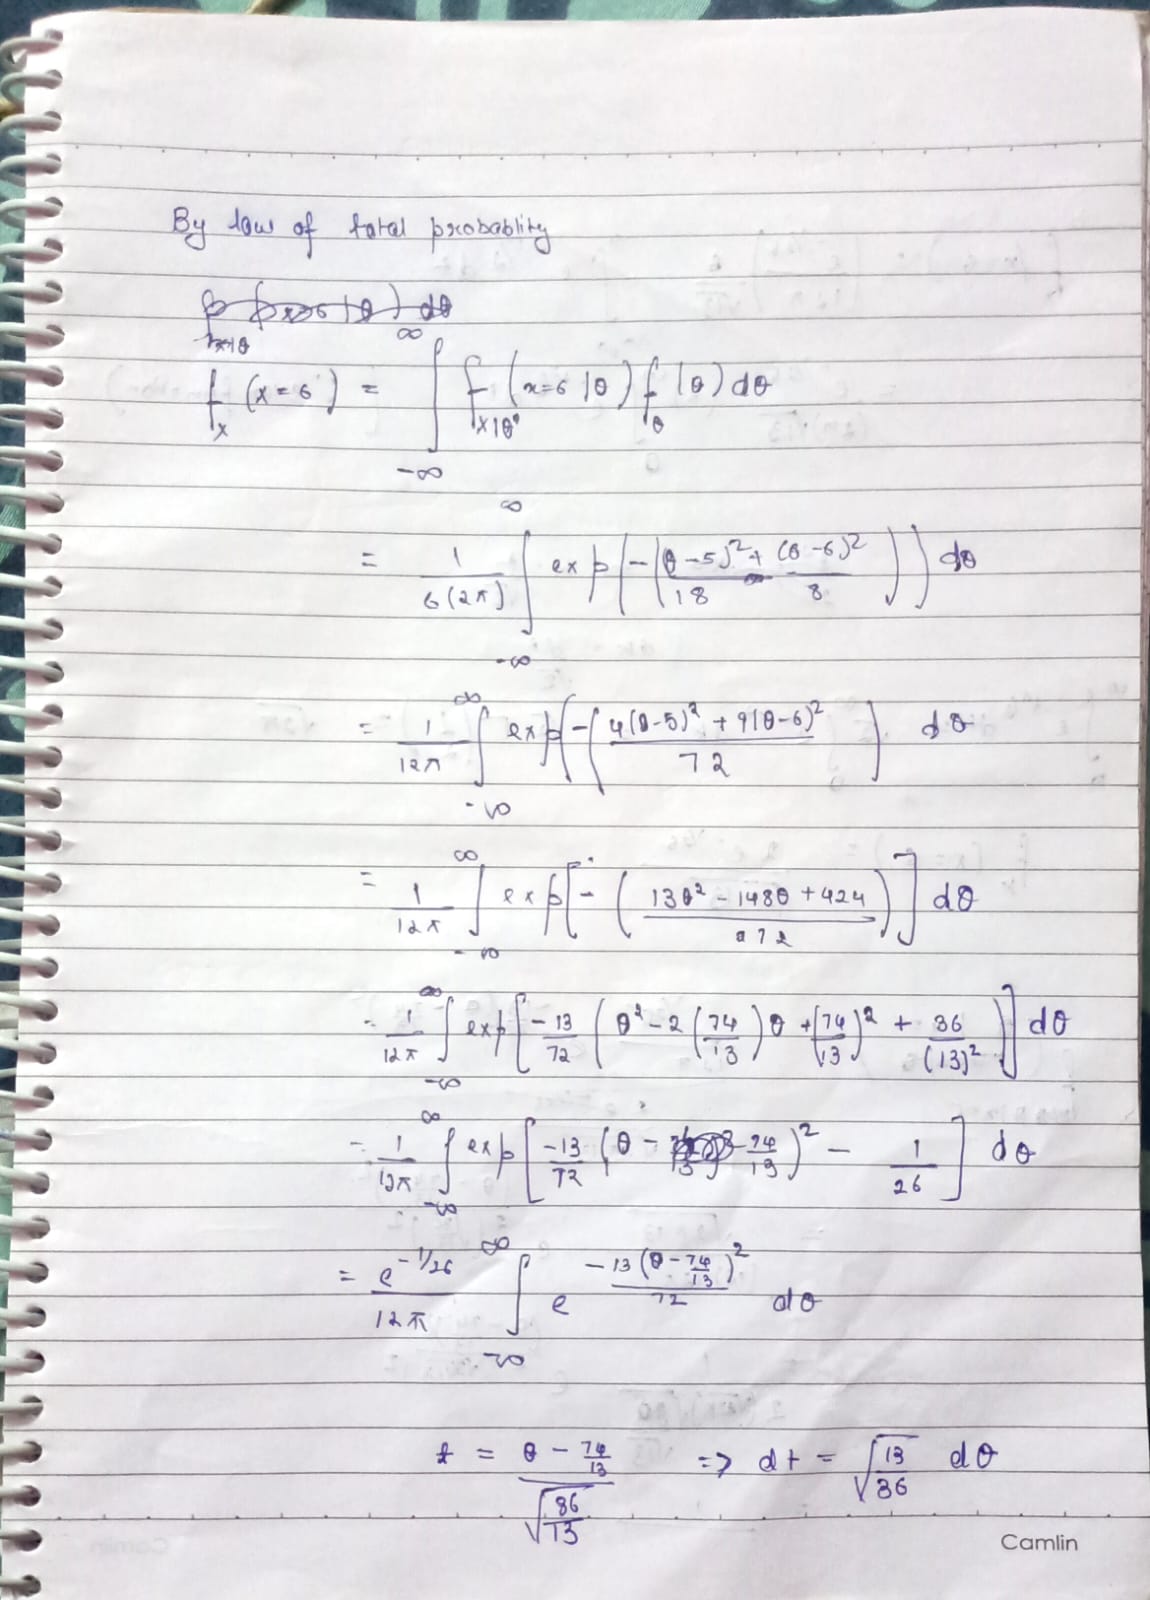 By law of total probablity
f_X (x=6) = ∫_{-∞}^{∞} f_{X|θ} (x=6 |θ) f_θ (θ) dθ
= 1/(6(2π)) ∫_{-∞}^{∞} exp(-((θ-5)²/18 + (θ-6)²/8)) dθ
= 1/(12π) ∫_{-∞}^{∞} exp(-((4(θ-5)² + 9(θ-6)²)/72) dθ
= 1/(12π) ∫_{-∞}^{∞} exp[-((13θ² - 148θ + 424)/72)] dθ
= 1/(12π) ∫_{-∞}^{∞} exp[-13/72 (θ² - 2(74/13)θ + (74/13)² + 36/(13)²)] dθ
= 1/(12π) ∫_{-∞}^{∞} exp[-13/72 (θ - 74/13)² - 1/26] dθ
= e^{-1/26}/(12π) ∫_{-∞}^{∞} e^{-13(θ-74/13)²/72} dθ
t = (θ - 74/13)/√(36/13) => dt = √(13/36) dθ
Camlin